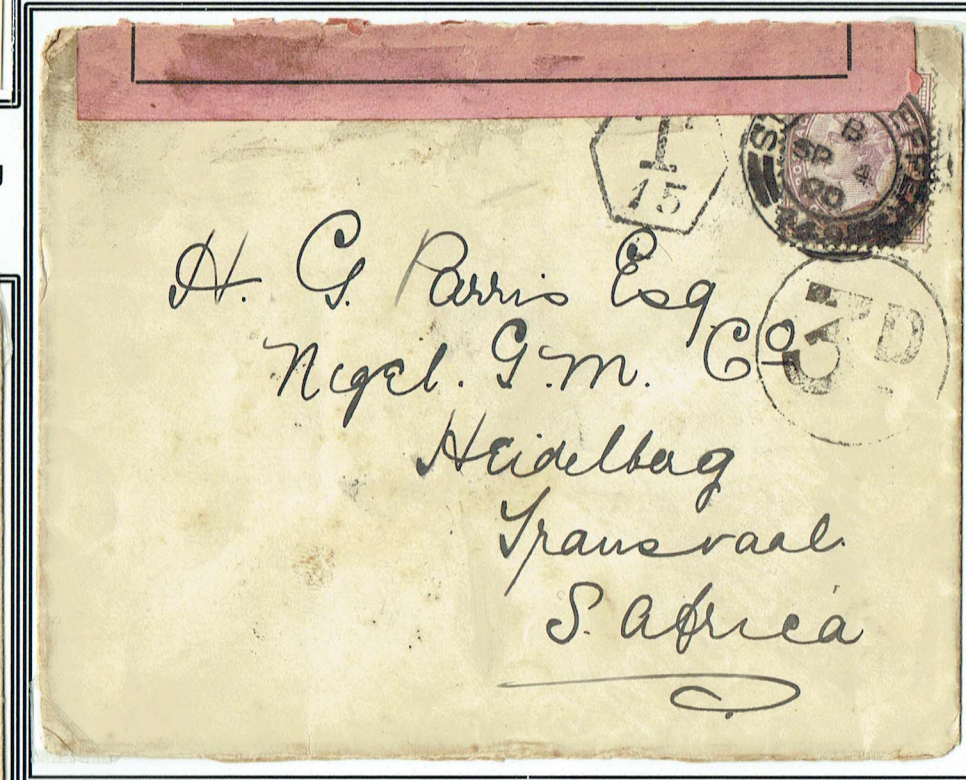 T
15
B
SP 4
00
3 D
H. G. Parris Esq
Nigel. G. M. Co
Heidelberg
Transvaal.
S. Africa